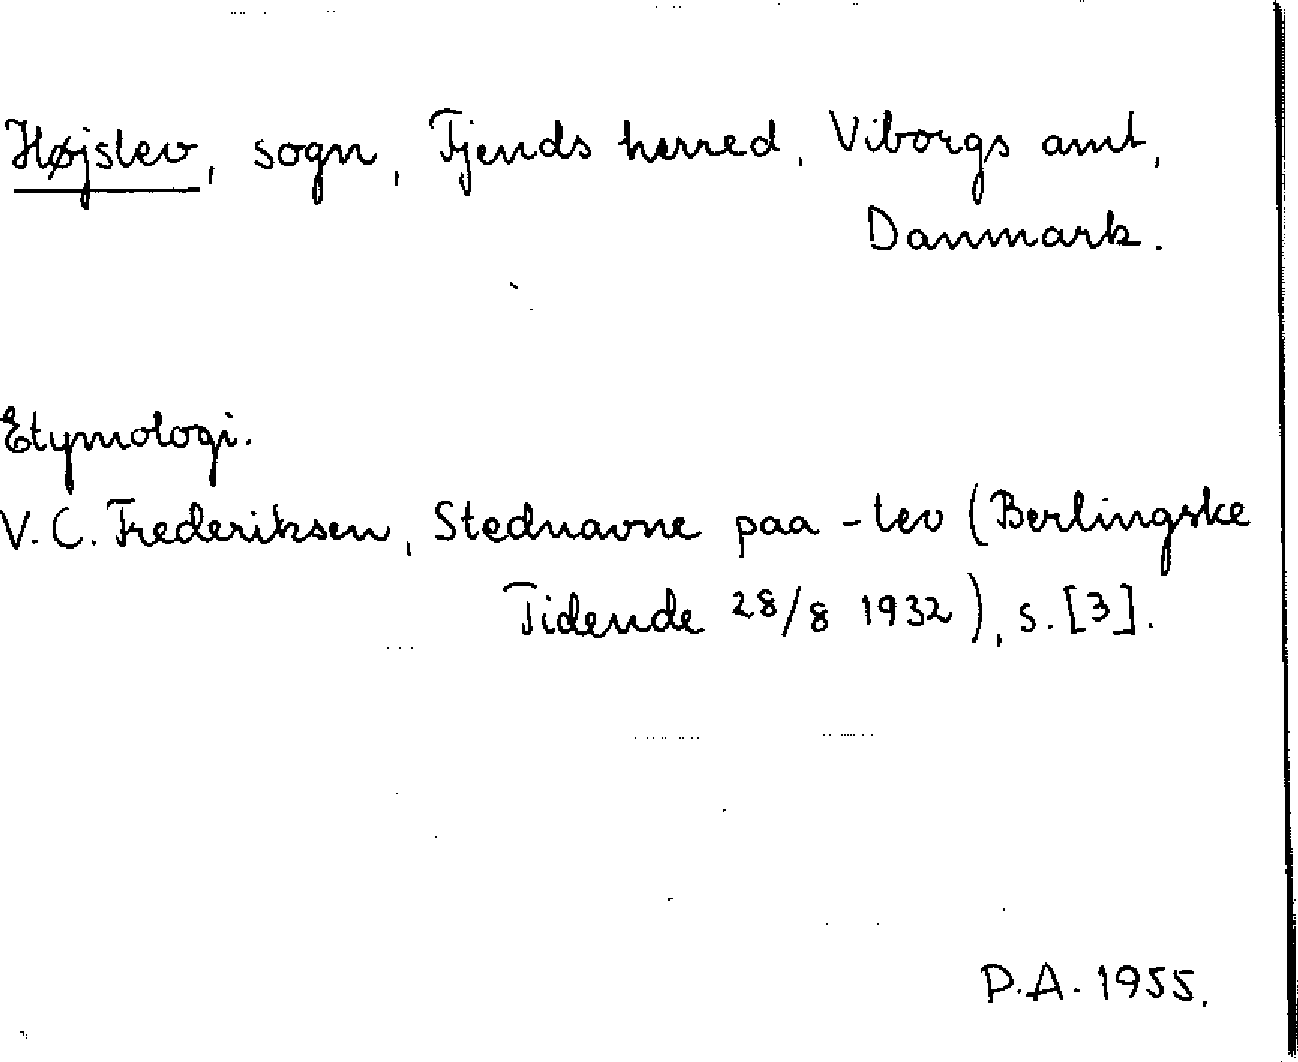 Højslev, sogn, Fjends herred, Viborgs amt,
Danmark.
Etymologi.
V. C. Frederiksen, Stednavne paa -lev (Berlingske
Tidende 28/8 1932), s. [3].
P.A. 1955.